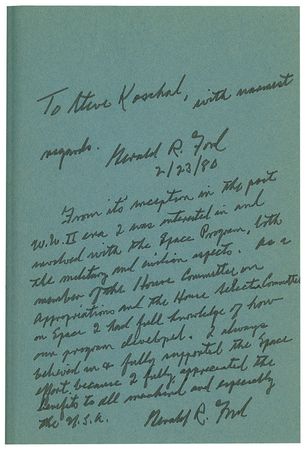 To Steve Koschal, with warmest
regards.
Gerald R. Ford
2/23/80
From its inception in the post
W.W. II era I was interested in and
involved with the Space Program, both
the military and civilian aspects. As a
member of the House Committee on
Appropriations and the House Select Committee
on Space I had full knowledge of how
our program developed. I always
believed in & fully supported the Space
effort because I fully appreciated the
benefits to all mankind and especially
the U.S.A.
Gerald R. Ford